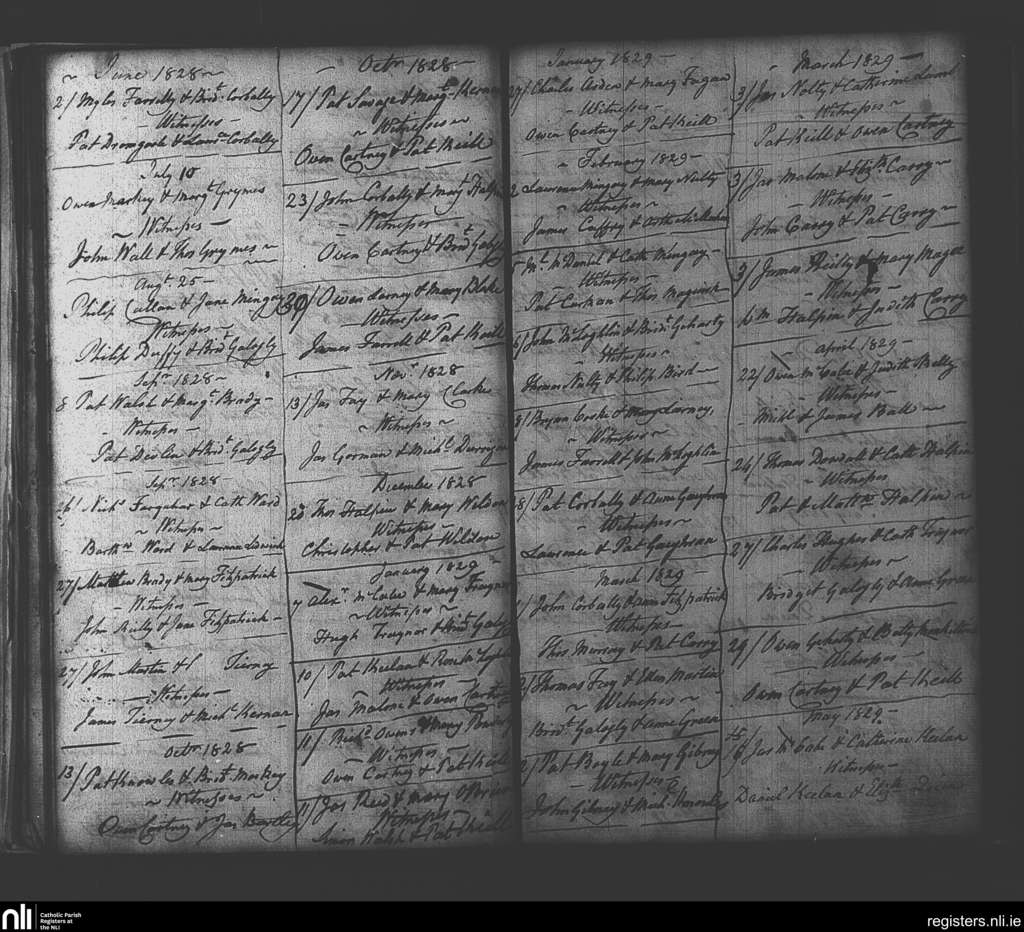 June 1828
2/ Myles Farrelly & Brid.t Corbally
Witnesses
Pat Dromgoole & Laur.ce Corbally
July 10
Owen Markey & Marg.t Grymes
Witnesses
John Wall & Thos Grymes
Aug.t 25
Philip Cullan & Jane Mingey
Witnesses
Philip Duffy & Brid.t Galogly
Sep.r 1828
8 Pat Walsh & Marg.t Brady
Witnesses
Pat Devlin & Brid.t Galogly
Sep.r 1828
26/ Nich.s Farquhar & Cath Ward
Witnesses
Barth.w Ward &
27/ Matthew Brady & Mary Fitzpatrick
Witnesses
John Reilly & Jane Fitzpatrick
27/ John Martin & Tierny
Witnesses
James Tierny & Mich.l Kernan
Oct.r 1828
13/ Pat Knowles & Brid.t Markey
Witnesses
Owen Cartney & Jas Bartley
Oct.r 1828
17/ Pat Savage & Marg.t Kernan
Witnesses
Owen Cartney & Pat Keill
23/ John Corbally & Mary Halpin
Witnesses
Owen Cartney & Brid.t Galogly
30/ Owen Larney & Mary Blake
Witnesses
James Farrell & Pat Keill
Nov.r 1828
13/ Jas Fay & Mary Clarke
Witnesses
Jas Gorman & Mich.l
December 1828
20 Thos Halpin & Mary Weldon
Witnesses
Christopher & Pat Weldon
January 1829
7 Alex.r McCabe & Mary Traynor
Witnesses
Hugh Traynor & Galogly
10/ Pat Keelan & Rose
Witnesses
Jas Malone & Owen Cartney
11/ Rich.d Owens & Mary
Witnesses
Owen Cartney & Pat Keill
11/ Jas Reid & Mary O'Brien
Witnesses
Simon Walsh & Pat Keill
January 1829
27/ Charles Arden & Mary Fagan
Witnesses
Owen Cartney & Pat Keill
February 1829
2 Lawrence Mingey & Mary Nulty
Witnesses
James Caffrey &
McDaniel & Cath Mingey
Witnesses
Pat Corkan & Thos Maguire
6/ John McLoghlin & Brid.t Goharty
Witnesses
Thomas Nulty & Philip Bird
8/ Bryan Coske & Mary Larney
Witnesses
James Farrell & John McLoghlin
8/ Pat Corbally & Anne Gaughran
Witnesses
Lawrence & Pat Gaughran
March 1829
1/ John Corbally & Anne Fitzpatrick
Witnesses
Thos Murray & Pat Carey
2/ Thomas Fay & Ellen Martin
Witnesses
Brid.t Galogly & Anne Green
2/ Pat Boyle & Mary Gibney
Witnesses
John Gibney & Mich.l Knowles
March 1829
3/ Jas Nulty & Catherine Lamb
Witnesses
Pat Keill & Owen Cartney
3/ Jas Malone & Eliz.th Carey
Witnesses
John Carey & Pat Carey
3/ James Reilly & Mary Magee
Witnesses
Wm Halpin & Judith Carey
April 1829
22/ Owen McCabe & Judith Reilly
Witnesses
Mich.l & James Ball
24/ Thomas Dowdall & Cath Halpin
Witnesses
Pat & Matt.w Halpin
27/ Charles Hughes & Cath Traynor
Witnesses
Bridget Galogly & Anne Green
29/ Owen Goharty & Betty
Witnesses
Owen Cartney & Pat Keill
May 1829
Jas McCabe & Catherine Keelan
Witnesses
Daniel Keelan & Eliz.th
nli
Catholic Parish
Registers at
the NLI
registers.nli.ie